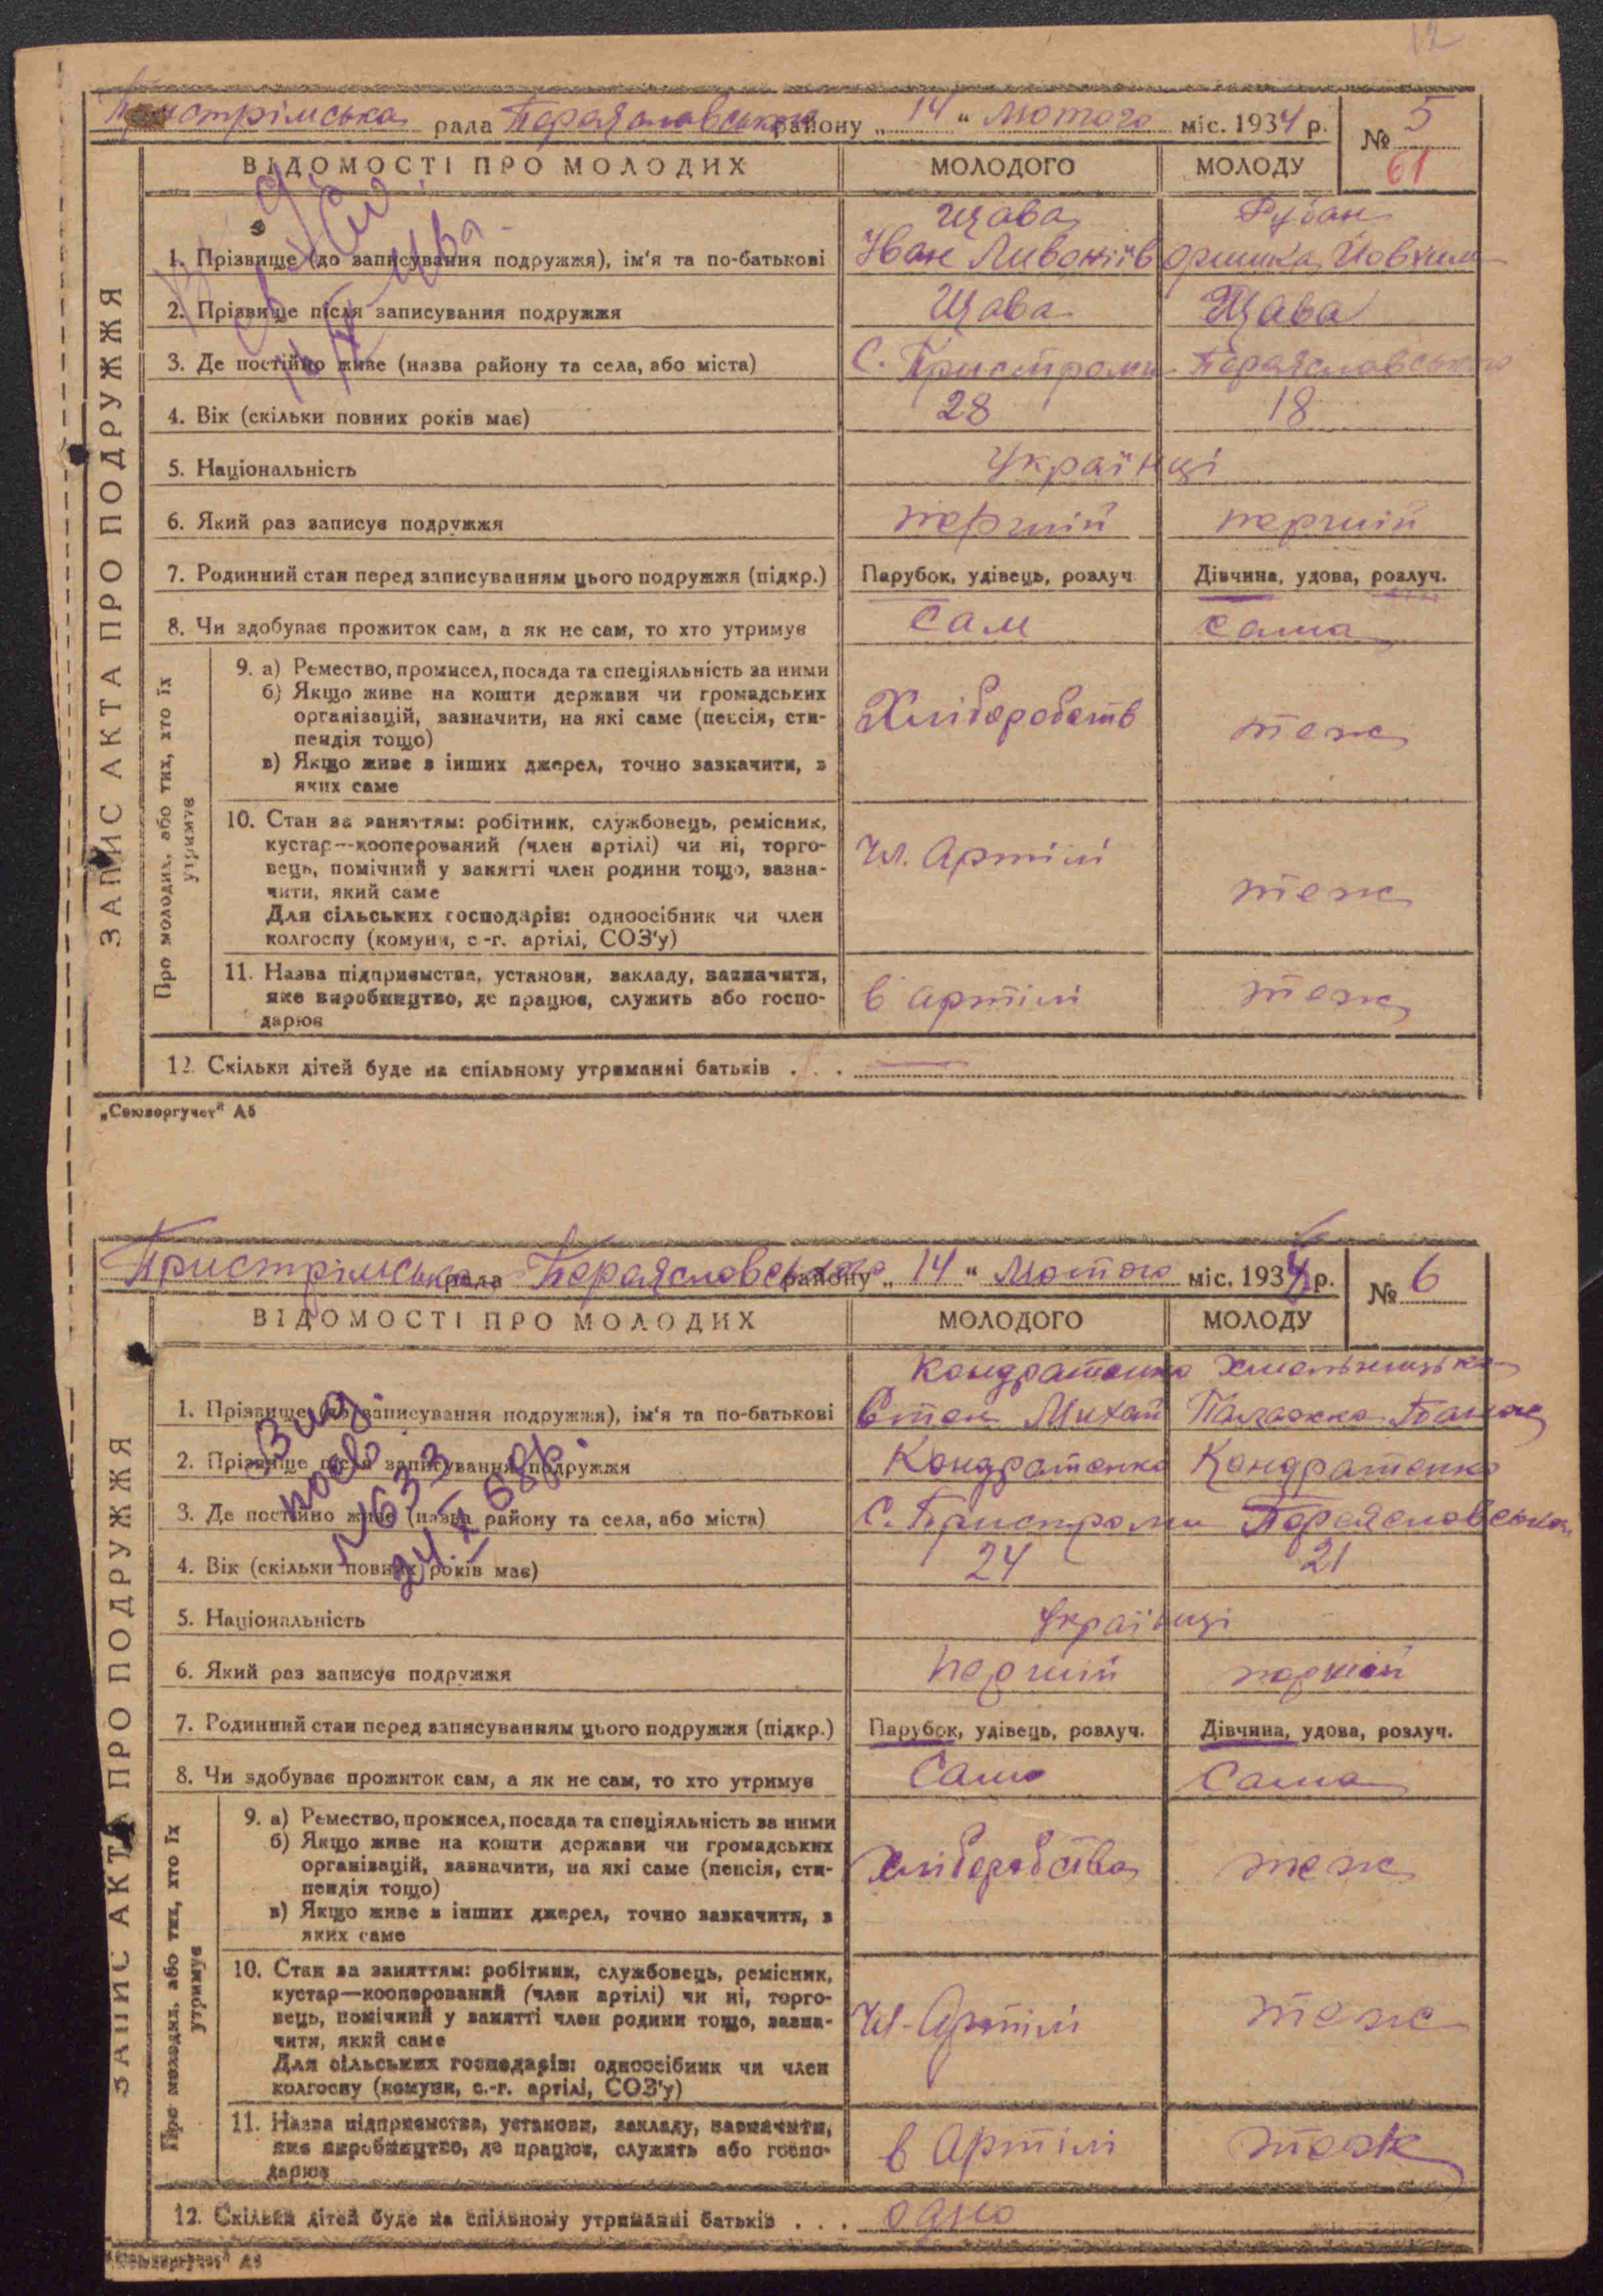 12
Пристрімська рада Переяславського району „ 14 “ лютого міс. 1934 р.
№ 5
61
ВІДОМОСТІ ПРО МОЛОДИХ МОЛОДОГО МОЛОДУ
ЗАПИС АКТА ПРО ПОДРУЖЖЯ
Щава Рубан
1. Прізвище (до записування подружжя), ім'я та по-батькові Іван Оришка
2. Прізвище після записування подружжя Щава Щава
3. Де постійно живе (назва району та села, або міста) С. Пристроми Переяславського
4. Вік (скільки повних років має) 28 18
5. Національність Українці
6. Який раз записує подружжя першій першій
7. Родинний стан перед записуванням цього подружжя (підкр.) Парубок, удівець, розлуч. Дівчина, удова, розлуч.
8. Чи здобуває прожиток сам, а як не сам, то хто утримує Сам Сама
Про молодих, або тих, хто їх утримує
9. а) Ремество, промисел, посада та спеціяльність за ними
б) Якщо живе на кошти держави чи громадських
організацій, зазначити, на які саме (пенсія, сти-
пендія тощо)
в) Якщо живе з інших джерел, точно зазначити, з
яких саме
Хліборобств теж
10. Стан за заняттям: робітник, службовець, ремісник,
кустар—кооперований (член артілі) чи ні, торго-
вець, помічний у занятті член родини тощо, зазна-
чити, який саме
Для сільських господарів: одноосібник чи член
колгоспу (комуни, с.-г. артілі, СОЗ'у)
Чл. Артілі теж
11. Назва підприємства, установи, закладу, зазначити,
яке виробництво, де працює, служить або госпо-
дарює
в артілі теж
12. Скільки дітей буде на спільному утриманні батьків . . . —
„Союзоргучет“ А5
Пристрімська рада Переяславського району „ 14 “ Лютого міс. 1934 р.
№ 6
ВІДОМОСТІ ПРО МОЛОДИХ МОЛОДОГО МОЛОДУ
ЗАПИС АКТА ПРО ПОДРУЖЖЯ
Кондратенко Хмельницька
1. Прізвище (до записування подружжя), ім'я та по-батькові Степ Михай Палажка
2. Прізвище після записування подружжя Кондратенко Кондратенко
3. Де постійно живе (назва району та села, або міста) С. Пристроми Переяславська
4. Вік (скільки повних років має) 24 21
5. Національність Українці
6. Який раз записує подружжя першій першій
7. Родинний стан перед записуванням цього подружжя (підкр.) Парубок, удівець, розлуч. Дівчина, удова, розлуч.
8. Чи здобуває прожиток сам, а як не сам, то хто утримує Сам Сама
Про молодих, або тих, хто їх утримує
9. а) Ремество, промисел, посада та спеціяльність за ними
б) Якщо живе на кошти держави чи громадських
організацій, зазначити, на які саме (пенсія, сти-
пендія тощо)
в) Якщо живе з інших джерел, точно зазначити, з
яких саме
Хліборобства теж
10. Стан за заняттям: робітник, службовець, ремісник,
кустар—кооперований (член артілі) чи ні, торго-
вець, помічний у занятті член родини тощо, зазна-
чити, який саме
Для сільських господарів: одноосібник чи член
колгоспу (комуни, с.-г. артілі, СОЗ'у)
Чл. Артілі теж
11. Назва підприємства, установи, закладу, зазначити,
яке виробництво, де працює, служить або госпо-
дарює
в Артілі теж
12. Скільки дітей буде на спільному утриманні батьків . . . одно
„Союзоргучет“ А5